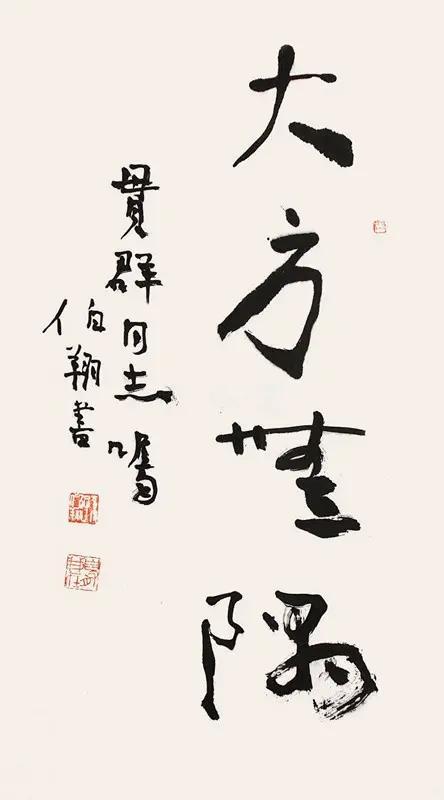 大方無隅
貫群同志囑
伯翔書